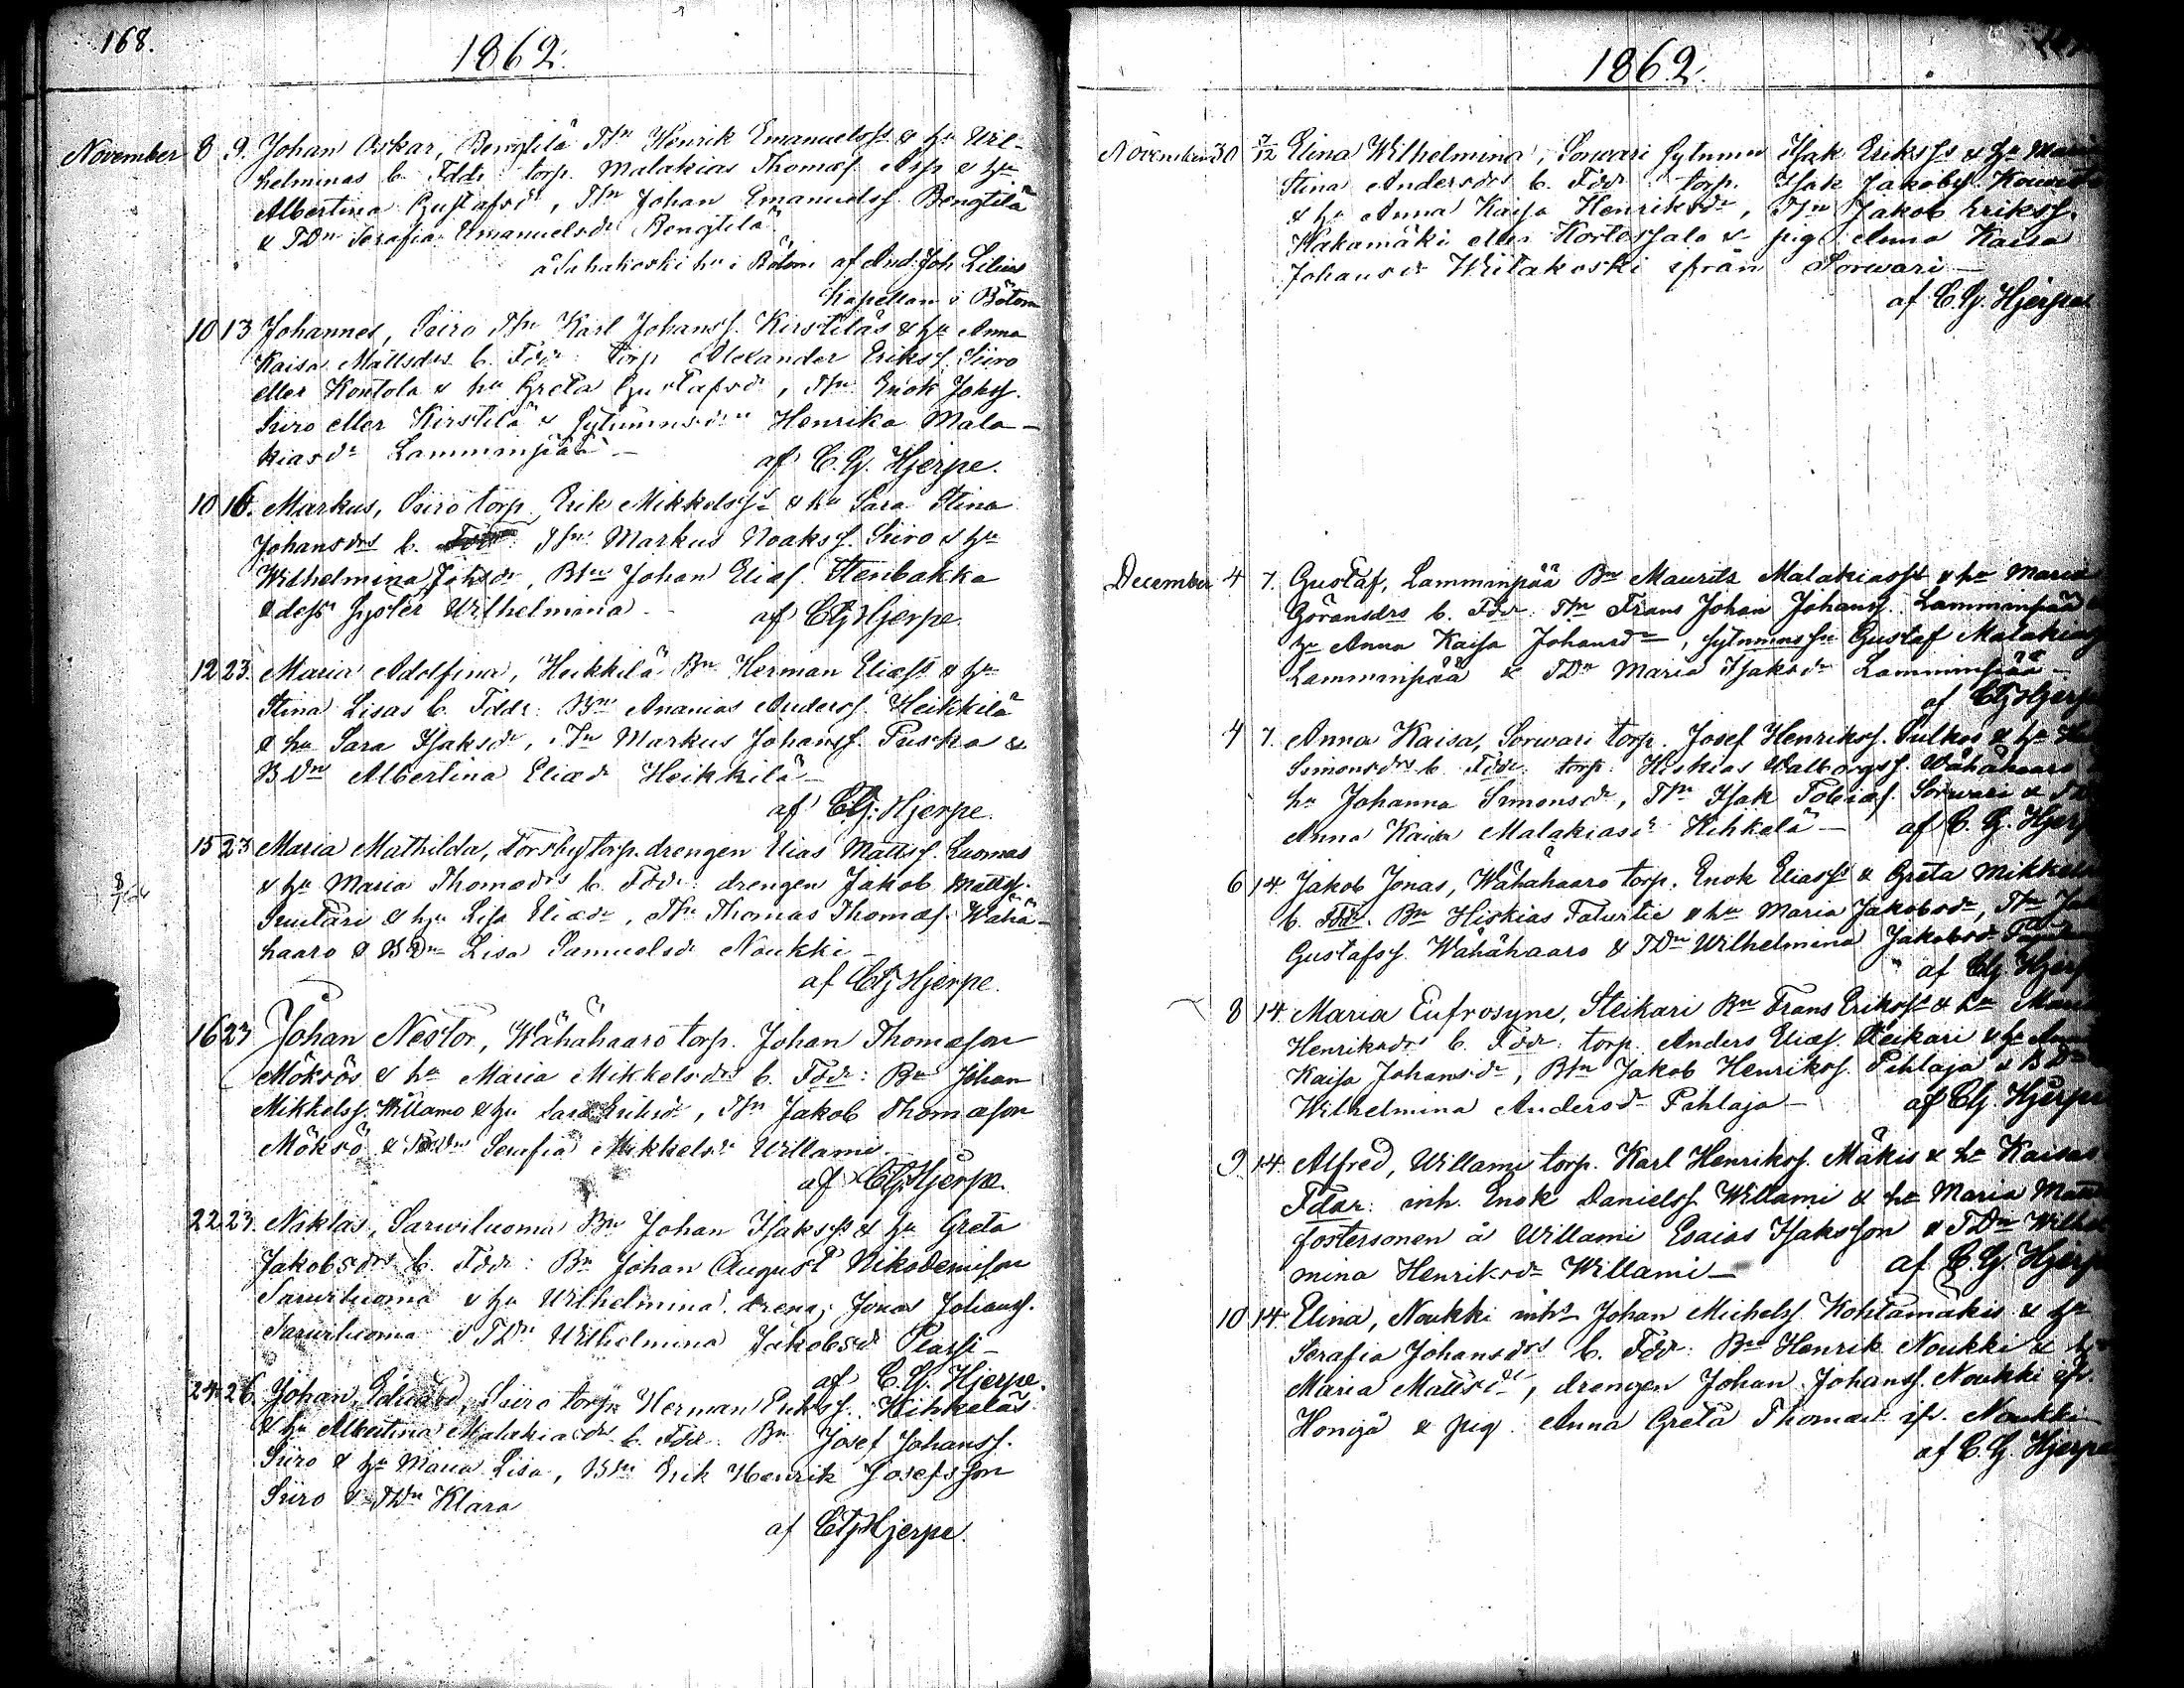 168.
1862.
November 8 9. Johan Oskar, Bengtilä Tn Henrik Emanuelss & hu Wil-
helminas b. Fddr: torp. Malakias Thomæs. Asp & hu
Albertina Gustafsdr, Tsn Johan Emanuelss. Bengtilä
& TDn Serafia Emanuelsdr Bengtilä
å Sahakoski hn i Bötom af And. Joh. Lilius
Kapellan i Bötom
10 13 Johannes, Siiro Tsn Karl Johanss. Kirstiläs & hu Anna
Kaisa Mattsdrs b. Fddr: torp Alexander Erikss. Siiro
eller Kontola & hu Greta Gustafsdr, Tsn Enok Johss.
Siiro eller Kirstilä & sytnmnsdn Henrika Mala-
kiasdr Lamminpää - af C. G. Hjerpe.
10 16. Markus, Siiro torp. Erik Mikkelss & hu Sara Stina
Johansdrs b. Tsn Markus Noakss. Siiro & hu
Wilhelmina Johsdr, Bsn Johan Eliæs. Stenbakka
& dess syster Wilhelmina. af CGHjerpe.
12 23. Maria Adolfina, Heikkilä Bn Herman Eliæss & hu
Stina Lisas b. Fddr: Bn Ananias Anderss. Heikkilä
& hu Sara Isaksdr, Tn Markus Johanss. Puska &
BDn Albertina Eliædr Heikkilä -
af CG. Hjerpe.
15 23 Maria Mathilda, Torsby torp.drengen Elias Mattss. Luomas
& hu Maria Thomædrs b. Fddr: drengen Jakob Mattss.
& hu Lisa Eliædr, Tsn Thomas Thomæs. Wähä-
haaro & BDn Lisa Samuelsdr Noukki -
af CGHjerpe.
16 23 Johan Nestor, Wähähaaro torp. Johan Thomæson
Möksös & hu Maria Mikkelsdrs b. Fddr: Bn Johan
Mikkelss. Willamo & hu Sara Eriksdr, Tsn Jakob Thomæson
Möksö & Serafia Mikkelsdr Willami.
af CGHjerpe.
22 23. Niklas, Sarwiluoma Bn Johan Isakss & hu Greta
Jakobsdrs b. Fddr: Bn Johan August Nikodemison
Sarwiluoma & hu Wilhelmina, dreng. Jonas Johanss.
Sarwiluoma & TDn Wilhelmina Jakobsdr
af C. G. Hjerpe.
24 26. Johan Edvard, Siiro torpn Herman Erikss. Kihkeläs
& hu Albertina Malakiasdrs b. Fddr: Bn Josef Johanss.
Siiro & hu Maria Lisa, Bsn Erik Henrik Josefsson
Siiro & TDn Klara
af CGHjerpe.
1862.
November 30 7/12 Elina Wilhelmina, Sorwari sytnmn Isak Erikss & hu Maria
Stina Andersdrs b. Fddr: torp. Isak Jakobss.
& hu Anna Kaisa Henriksdr, Tsn Jakob Erikss.
Wakamäki eller Kortessalo & piga Anna Kaisa
Johansdr Wiitakoski ifrån Sorwari -
af C. G. Hjerpe
December 4 7. Gustaf, Lamminpää Bn Maurits Malakiass & hu Maria
Göransdrs b. Fddr: Tsn Frans Johan Johanss. Lamminpää &
hu Anna Kaisa Johansdr, sytnmns sn Gustaf Malakiass
Lamminpää & TDn Maria Isaksdr Lamminpää -
af CGHjerpe
4 7. Anna Kaisa, Sorwari torp. Josef Henrikss. Sulkos & hu
Simonsdrs b. Fddr: torp. Hiskias Walborgss. Wähähaaro
hu Johanna Simonsdr, Tsn Isak Tobiæs. Sorwari &
Anna Kaisa Malakiasdr Kihkelä - af C. G. Hjerp
6 14. Jakob Jonas, Wähähaaro torp. Enok Eliass & Greta Mikkels
b. Fddr. Bn Hiskias Taluitie & hu Maria Jakobsdr, Tsn
Gustafss. Wähähaaro & TDn Wilhelmina Jakobsdr
af CG. Hjerp
8 14. Maria Eufrosyne, Steikari Bn Frans Erikss & hu
Henriksdrs b. Fddr: torp. Anders Eliæs. Steikari & hu
Kaisa Johansdr, Bsn Jakob Henrikss. Pihlaja & BDn
Wilhelmina Andersdr Pihlaja - af CG. Hjerpe
9 14. Alfred, Willami torp. Karl Henrikss. Mäkis & hu Kaisas
Fddr: inh. Enok Danielss Willami & hu Maria
fostersonen å Willami Esaias Isaksson & TDn Wilhel
mina Henriksdr Willami - af C. G. Hjerp
10 14. Elina, Noukki inhs Johan Michelss Kohtamäkis & hu
Serafia Johansdrs b. Fddr: Bn Henrik Noukki & hu
Maria Mattsdr, drengen Johan Johanss. Noukki ifr.
& pig. Anna Greta Thomædr ifr. Noukki
af C. G. Hjerpe